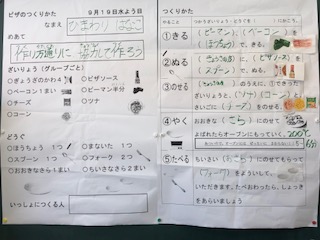 ピザのつくりかた　９月１９日水よう日
なまえ　ひまわり はなこ
めあて
作り方通りに 協力して作ろう
ざいりょう（グループごと）
○ぎょうざのかわ４
○ピザソース
○ベーコン１まい
○ピーマン半分
○チーズ
○ツナ
○コーン
どうぐ
○ほうちょう １つ
○まないた １つ
○スプーン １つ
○フォーク ２つ
○おおきなさら１まい
○ちいさなさら２まい
いっしょにつくる人
つくりかた
①きる
（ピーマン）、（ベーコン）を
（ほうちょう）で、きる。
②ぬる
に、（ピザソース）を
（スプーン）で、ぬる。
③のせる
ざいりょうと、（ツナ）（コーン）を
さいごに（チーズ）をのせる。
④やく
おおきな（さら）にのせて
よばれたらオーブンにもっていく。
200℃
6分
⑤たべる
ちいさい（おさら）にのせてもらって
（フォーク）をよういして、
いただきます。たべおわったら、しょっき
をあらいましょう